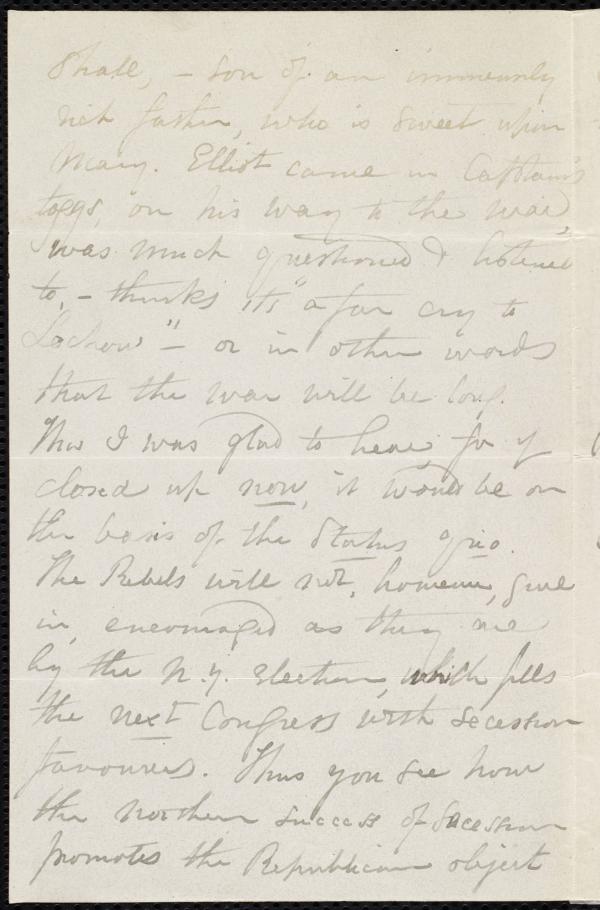 Shall, – son of an immensely
rich father, who is sweet upon
Mary. Elliot came in Captain's
toggs, on his way to the war,
was much questioned & listened
to, – thinks its "a far cry to
Lochow" – or in other words
that the war will be long.
This I was glad to hear, for if
closed up now, it would be on
the basis of the Status quo.
The Rebels will not, however, give
in, encouraged as they are
by the N.Y. Election, which fills
the next Congress with secession
favourers. Thus you see how
the northern success of secession
promotes the Republican object